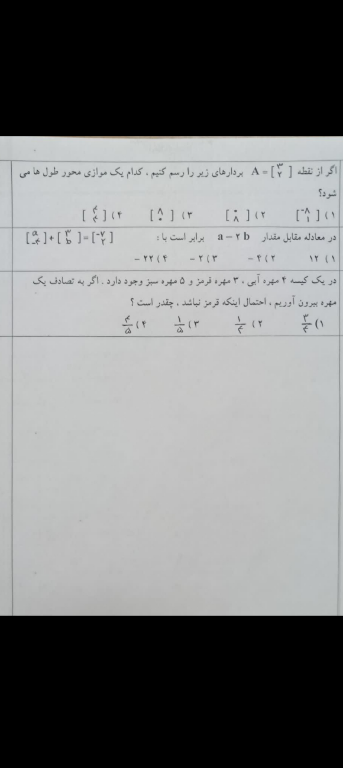 اگر از نقطه A = [ ۳ ۲ ] بردارهای زیر را رسم کنیم ، کدام یک موازی محور طول ها می
شود؟
۱) [ -۸ ۱ ] ۲) [ ۸ ] ۳) [ ۸ ۰ ] ۴) [ ]
در معادله مقابل مقدار a – ۲ b برابر است با : [ a -۴ ] + [ ۳ b ] = [ -۷ ۲ ]
۱) ۱۲ ۲) ۴ – ۳) ۲ – ۴) ۲۲ –
در یک کیسه ۴ مهره آبی ، ۳ مهره قرمز و ۵ مهره سبز وجود دارد . اگر به تصادف یک
مهره بیرون آوریم ، احتمال اینکه قرمز نباشد ، چقدر است ؟
۱) ۳/۴ ۲) ۱/۴ ۳) ۱/۵ ۴) ۴/۵